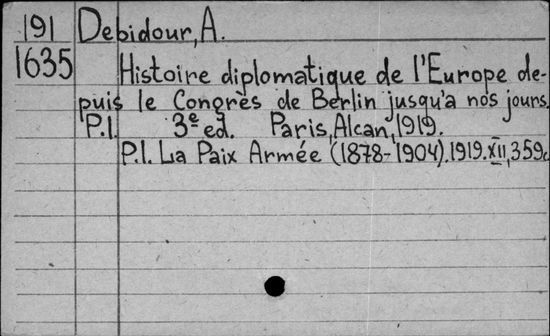 191 Debidour, A.
1635 Histoire diplomatique de l'Europe de-
puis le Congrès de Berlin jusqu'a nos jours.
P.I. 3e ed. Paris, Alcan, 1919.
P.I. La Paix Armée (1878-1904). 1919. XII, 359c.